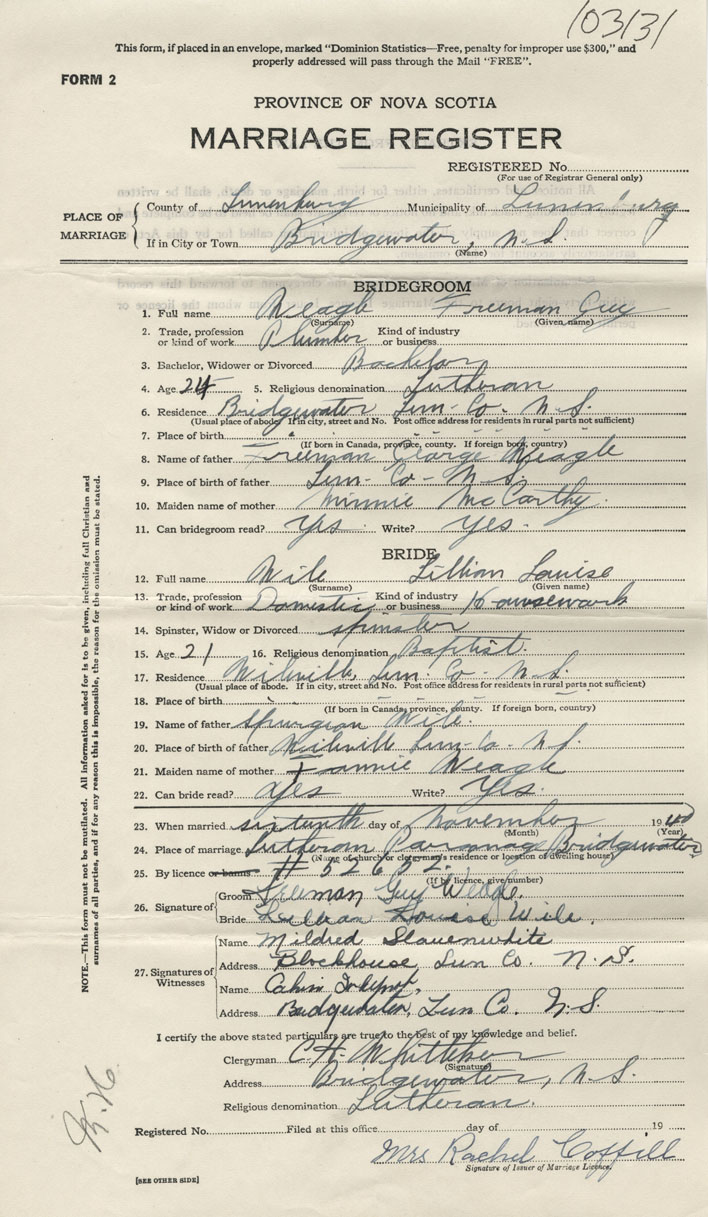 103131
This form, if placed in an envelope, marked "Dominion Statistics—Free, penalty for improper use $300," and
properly addressed will pass through the Mail "FREE".
FORM 2
PROVINCE OF NOVA SCOTIA
MARRIAGE REGISTER
REGISTERED No.
(For use of Registrar General only)
PLACE OF MARRIAGE
County of Lunenburg Municipality of Lunenburg
If in City or Town Bridgewater, N.S.
(Name)
BRIDEGROOM
1. Full name Weagle Freeman Guy
(Surname) (Given name)
2. Trade, profession or kind of work Plumber Kind of industry or business
3. Bachelor, Widower or Divorced Bachelor
4. Age 24 5. Religious denomination Lutheran
6. Residence Bridgewater Lun-Co. N.S.
(Usual place of abode. If in city, street and No. Post office address for residents in rural parts not sufficient)
7. Place of birth
(If born in Canada, province, county. If foreign born, country)
8. Name of father Freeman George Weagle
9. Place of birth of father Lun-Co-N.S.
10. Maiden name of mother Minnie McCarthy.
11. Can bridegroom read? Yes Write? Yes.
BRIDE
12. Full name Wile Lillian Louise
(Surname) (Given name)
13. Trade, profession or kind of work Domestic Kind of industry or business Housework
14. Spinster, Widow or Divorced spinster
15. Age 21 16. Religious denomination Baptist.
17. Residence Lun-Co N.S.
(Usual place of abode. If in city, street and No. Post office address for residents in rural parts not sufficient)
18. Place of birth
(If born in Canada, province, county. If foreign born, country)
19. Name of father Spurgeon Wile.
20. Place of birth of father Lun-Co-N.S.
21. Maiden name of mother Fannie Weagle
22. Can bride read? Yes Write? Yes.
23. When married sixteenth day of November 1940
(Month) (Year)
24. Place of marriage Lutheran Parsonage Bridgewater
(Name of church or clergyman's residence or location of dwelling house)
25. By licence or banns # 52652.
(If by licence, give number)
26. Signature of
Groom Freeman Guy Weagle.
Bride Lillian Louise Wile.
27. Signatures of Witnesses
Name Mildred Slauenwhite
Address Blockhouse Lun Co. N.S.
Name
Address Bridgewater, Lun Co. N.S.
I certify the above stated particulars are true to the best of my knowledge and belief.
Clergyman C.H. Whitteker
(Signature)
Address Bridgewater, N.S.
Religious denomination Lutheran.
Registered No. Filed at this office day of 19
Mrs Rachel Coffill
Signature of Issuer of Marriage Licence.
[SEE OTHER SIDE]
NOTE.—This form must not be mutilated. All information asked for is to be given, including full Christian and
surnames of all parties, and if for any reason this is impossible, the reason for the omission must be stated.